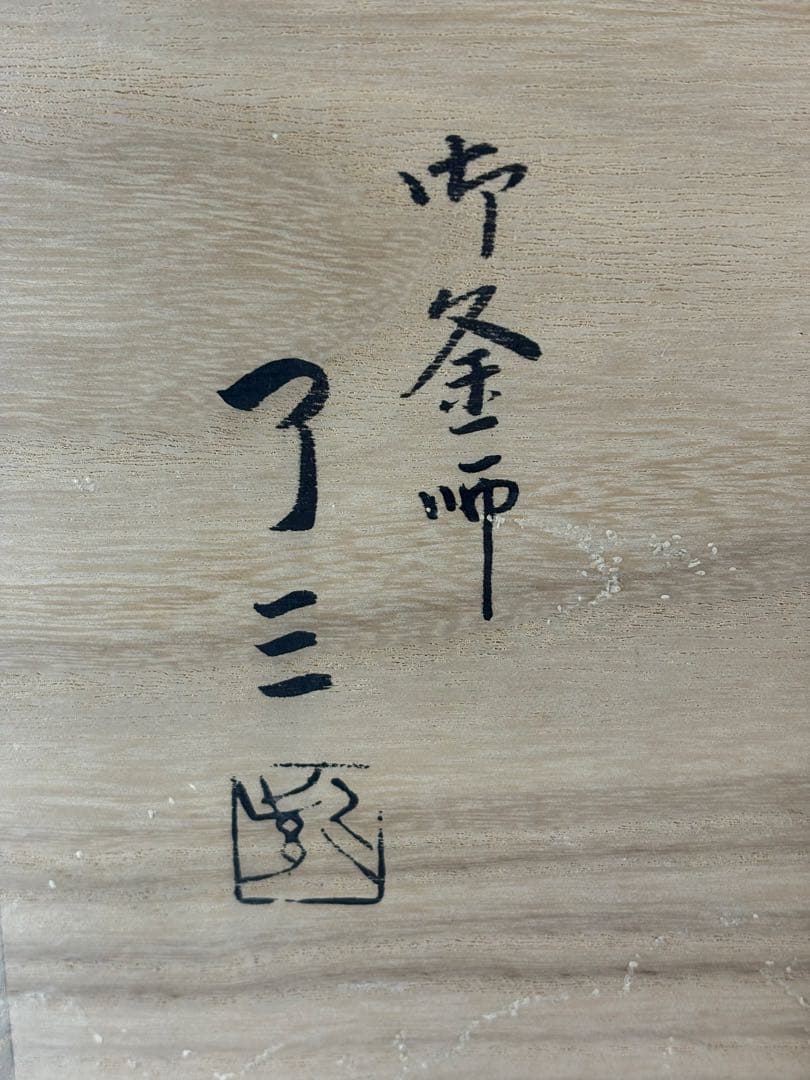 御釜師
了三